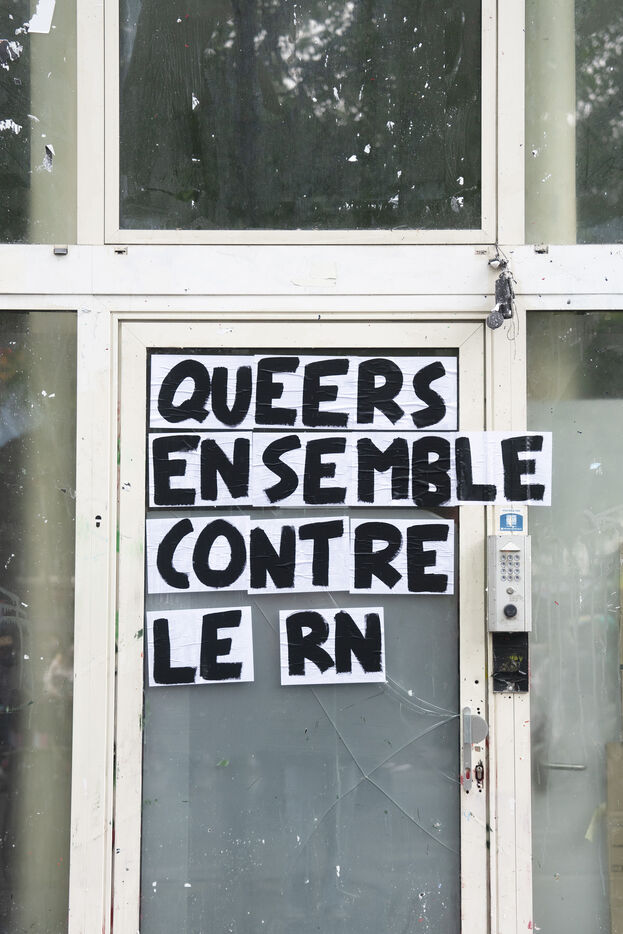 QUEERS
ENSEMBLE
CONTRE
LE RN